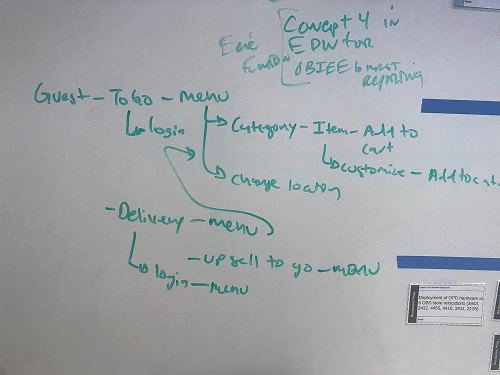 Concept 4 in
EDW for
OBIEE b
reporting
Guest - ToGo - menu
login
Category - Item - Add to
cart
customize - Add to cart
change location
- Delivery - menu
- upsell to go - menu
login - menu
Deployment of OPD hardware to
6 OBS store relocations